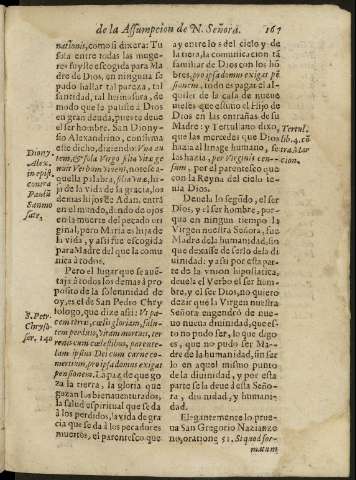 de la Assumpcion de N. Señora. 167
nationis, como si dixera: Tu
sola entre todas las muge-
res fuyste escogida para Ma
dre de Dios, en ninguna se
pudo hallar tal pureza, tal
santidad, tal hermosura, de
modo que la pusiste a Dios
en gran deuda, pues te deue
el ser hombre. San Diony-
sio Alexandrino, confirma
este dicho, diziendo: Vna au
tem, & sola Virgo filia vitæ ge
nuit Verbum vivens, notese a-
quella palabra, filia vitæ, hi-
ja de la vida de la gracia, los
demas hijos de Adan, entrá
en el mundo, dando de ojos
en la muerte del pecado ori
ginal, pero Maria es hija de
la vida, y assi fue escogida
para Madre del que la comu
nica à todos.
Pero el lugar que se auẽ-
taja à todos los demas à pro
posito de la solemnidad de
oy, es el de San Pedro Chry
sologo, que dize assi: Vt pa-
cem terræ, cælis gloriam, salu-
tem perditis, vitam mortuis, ter
renis cum cælestibus, parente-
lam ipsius Dei cum carne co-
mertium, pro ipsa domus exigat
pensionem. La paz de que go
za la tierra, la gloria que
gozan los bienauenturados,
la salud espiritual que se da
à los perdidos, la vida de gra
cia que se da à los pecadores
muertos, el parentesco que
Diony.
Alex.
in epist.
contra
Paulũ
Samno
sate,
S. Petr.
Chryso
ser. 140
ay entre los del cielo y de
la tierra, la comunicacion tã
familiar de Dios con los hõ
bres, pro ipsa domus exigat pẽ
sionem, todo es pagar el al-
quiler de la casa de nueue
meses que estuuo el Hijo de
Dios en las entrañas de su
Madre: y Tertuliano dixo,
que las mercedes que Dios
hazia al linage humano, se
las hazia, per Virginis cen-
sum, por el parentesco que
con la Reyna del cielo te-
nia Dios.
Deuela lo segũdo, el ser
Dios, y el ser hombre, por-
que en ningun tiempo la
Virgen nuestra Señora, fue
Madre de la humanidad, sin
que dexasse de serlo de la di-
uinidad: y assi por esta par-
te de la vnion hipostatica,
deuela el Verbo el ser hom-
bre, y el ser Dios, no quiero
dezir que la Virgen nuestra
Señora engendrò de nue-
uo nueua diuinidad, que es-
to no pudo ser, lo que digo
es, que no pudo ser Ma-
dre de la humanidad, sin ser
lo en aquel mismo punto
de la diuinidad, y por esta
parte se la deue à esta Seño-
ra, diuinidad, y humani-
dad.
Elegantemente lo prue-
ua San Gregorio Nazianze
no, oratione 51. Si quid for-
matum
Tertul.
lib. 4. cõ
tra Mar
cion.